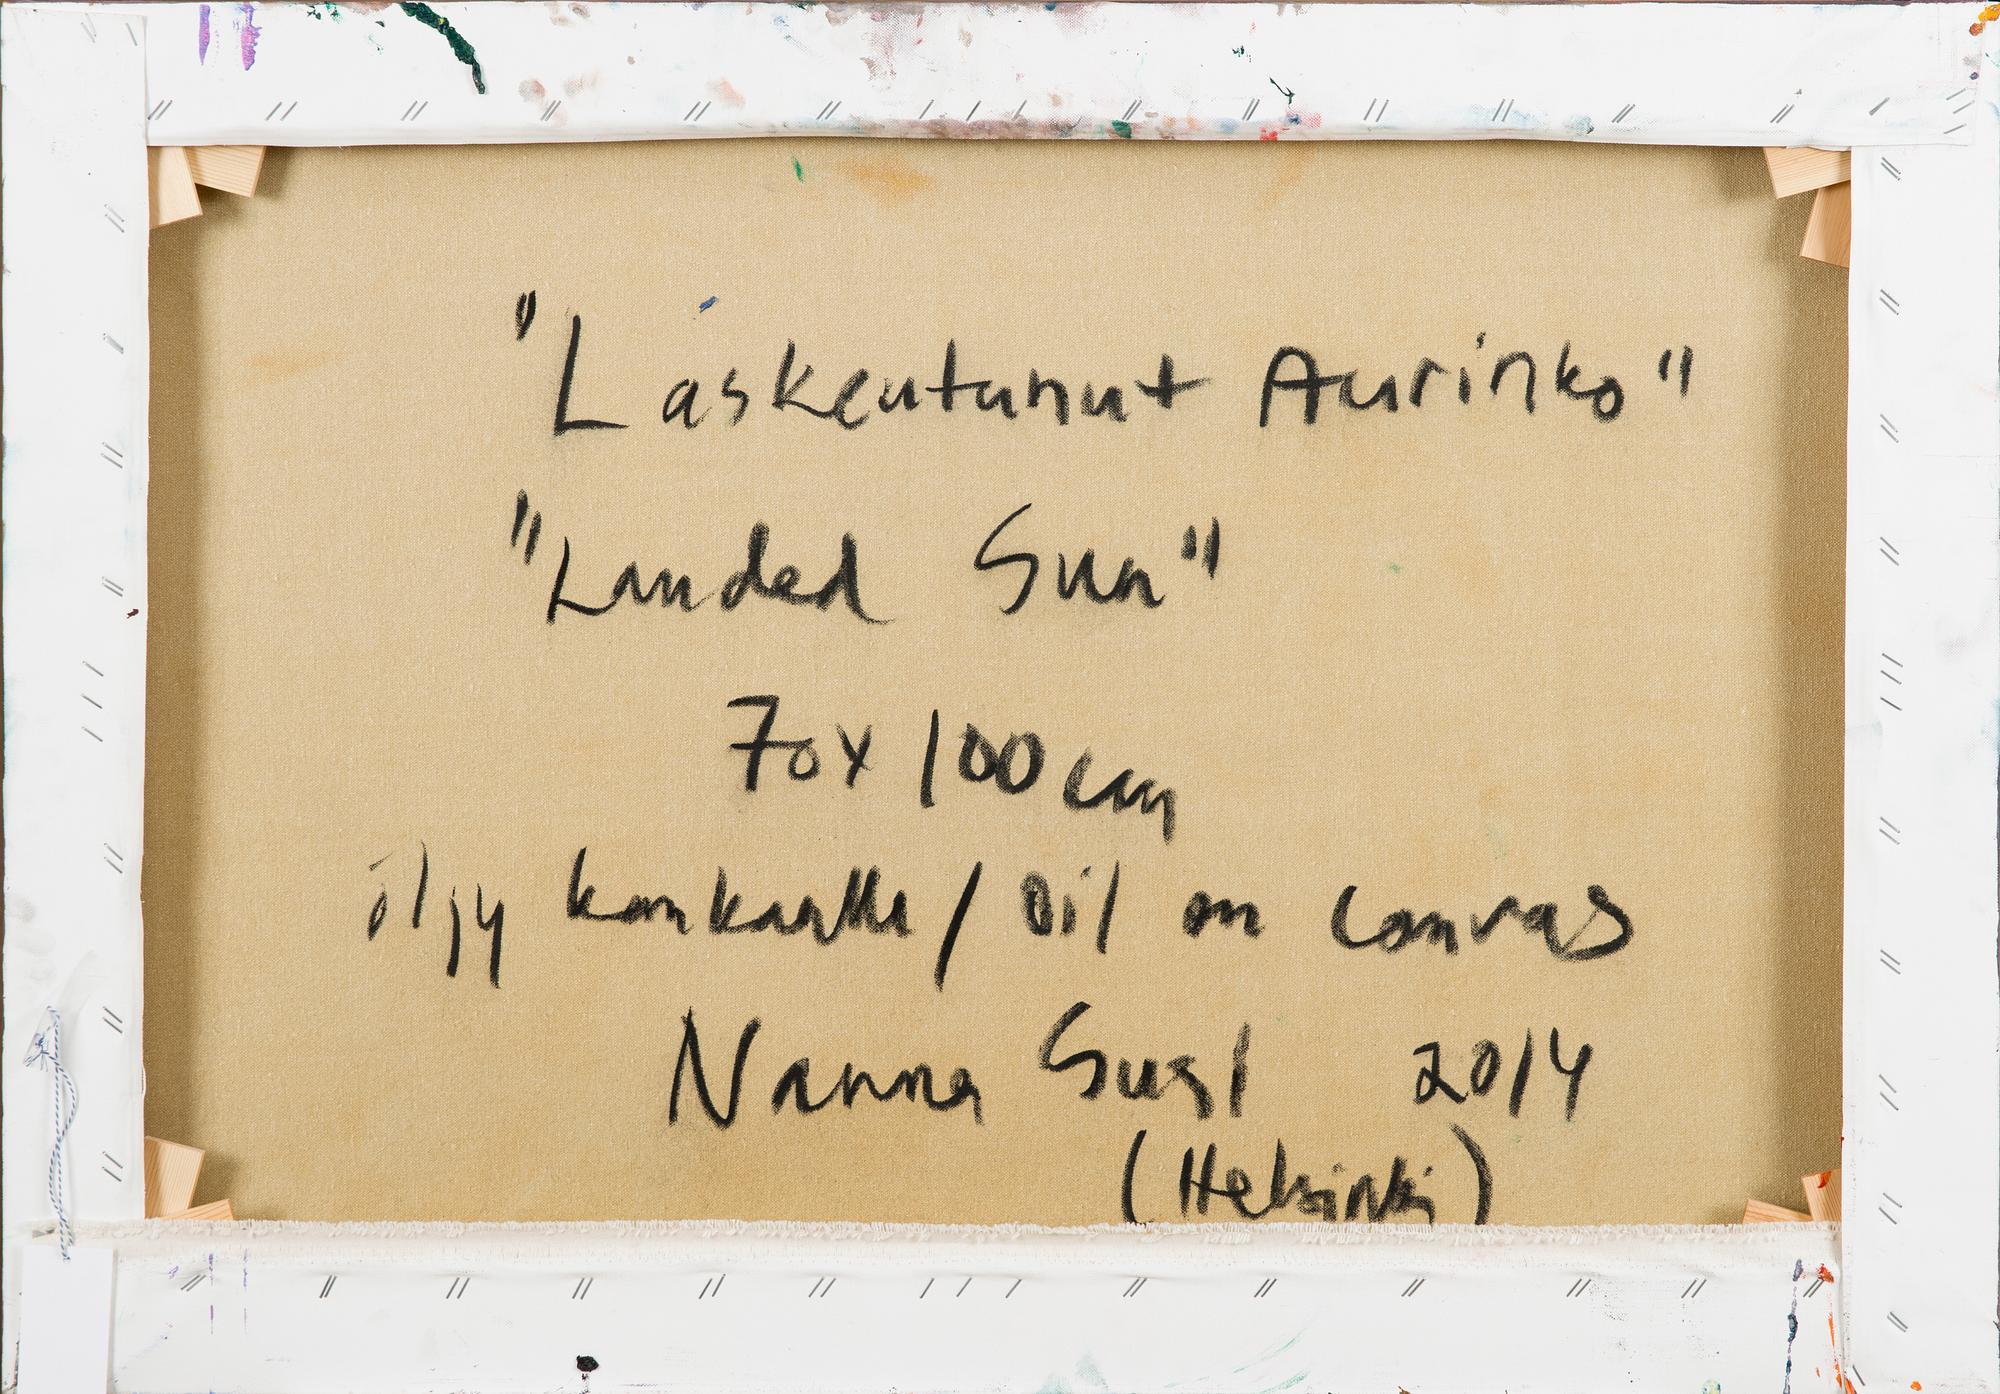 "Laskeutunut Aurinko"
"Landed Sun"
70x100cm
öljy kankaalle / Oil on canvas
Nanna Susi 2014
(Helsinki)